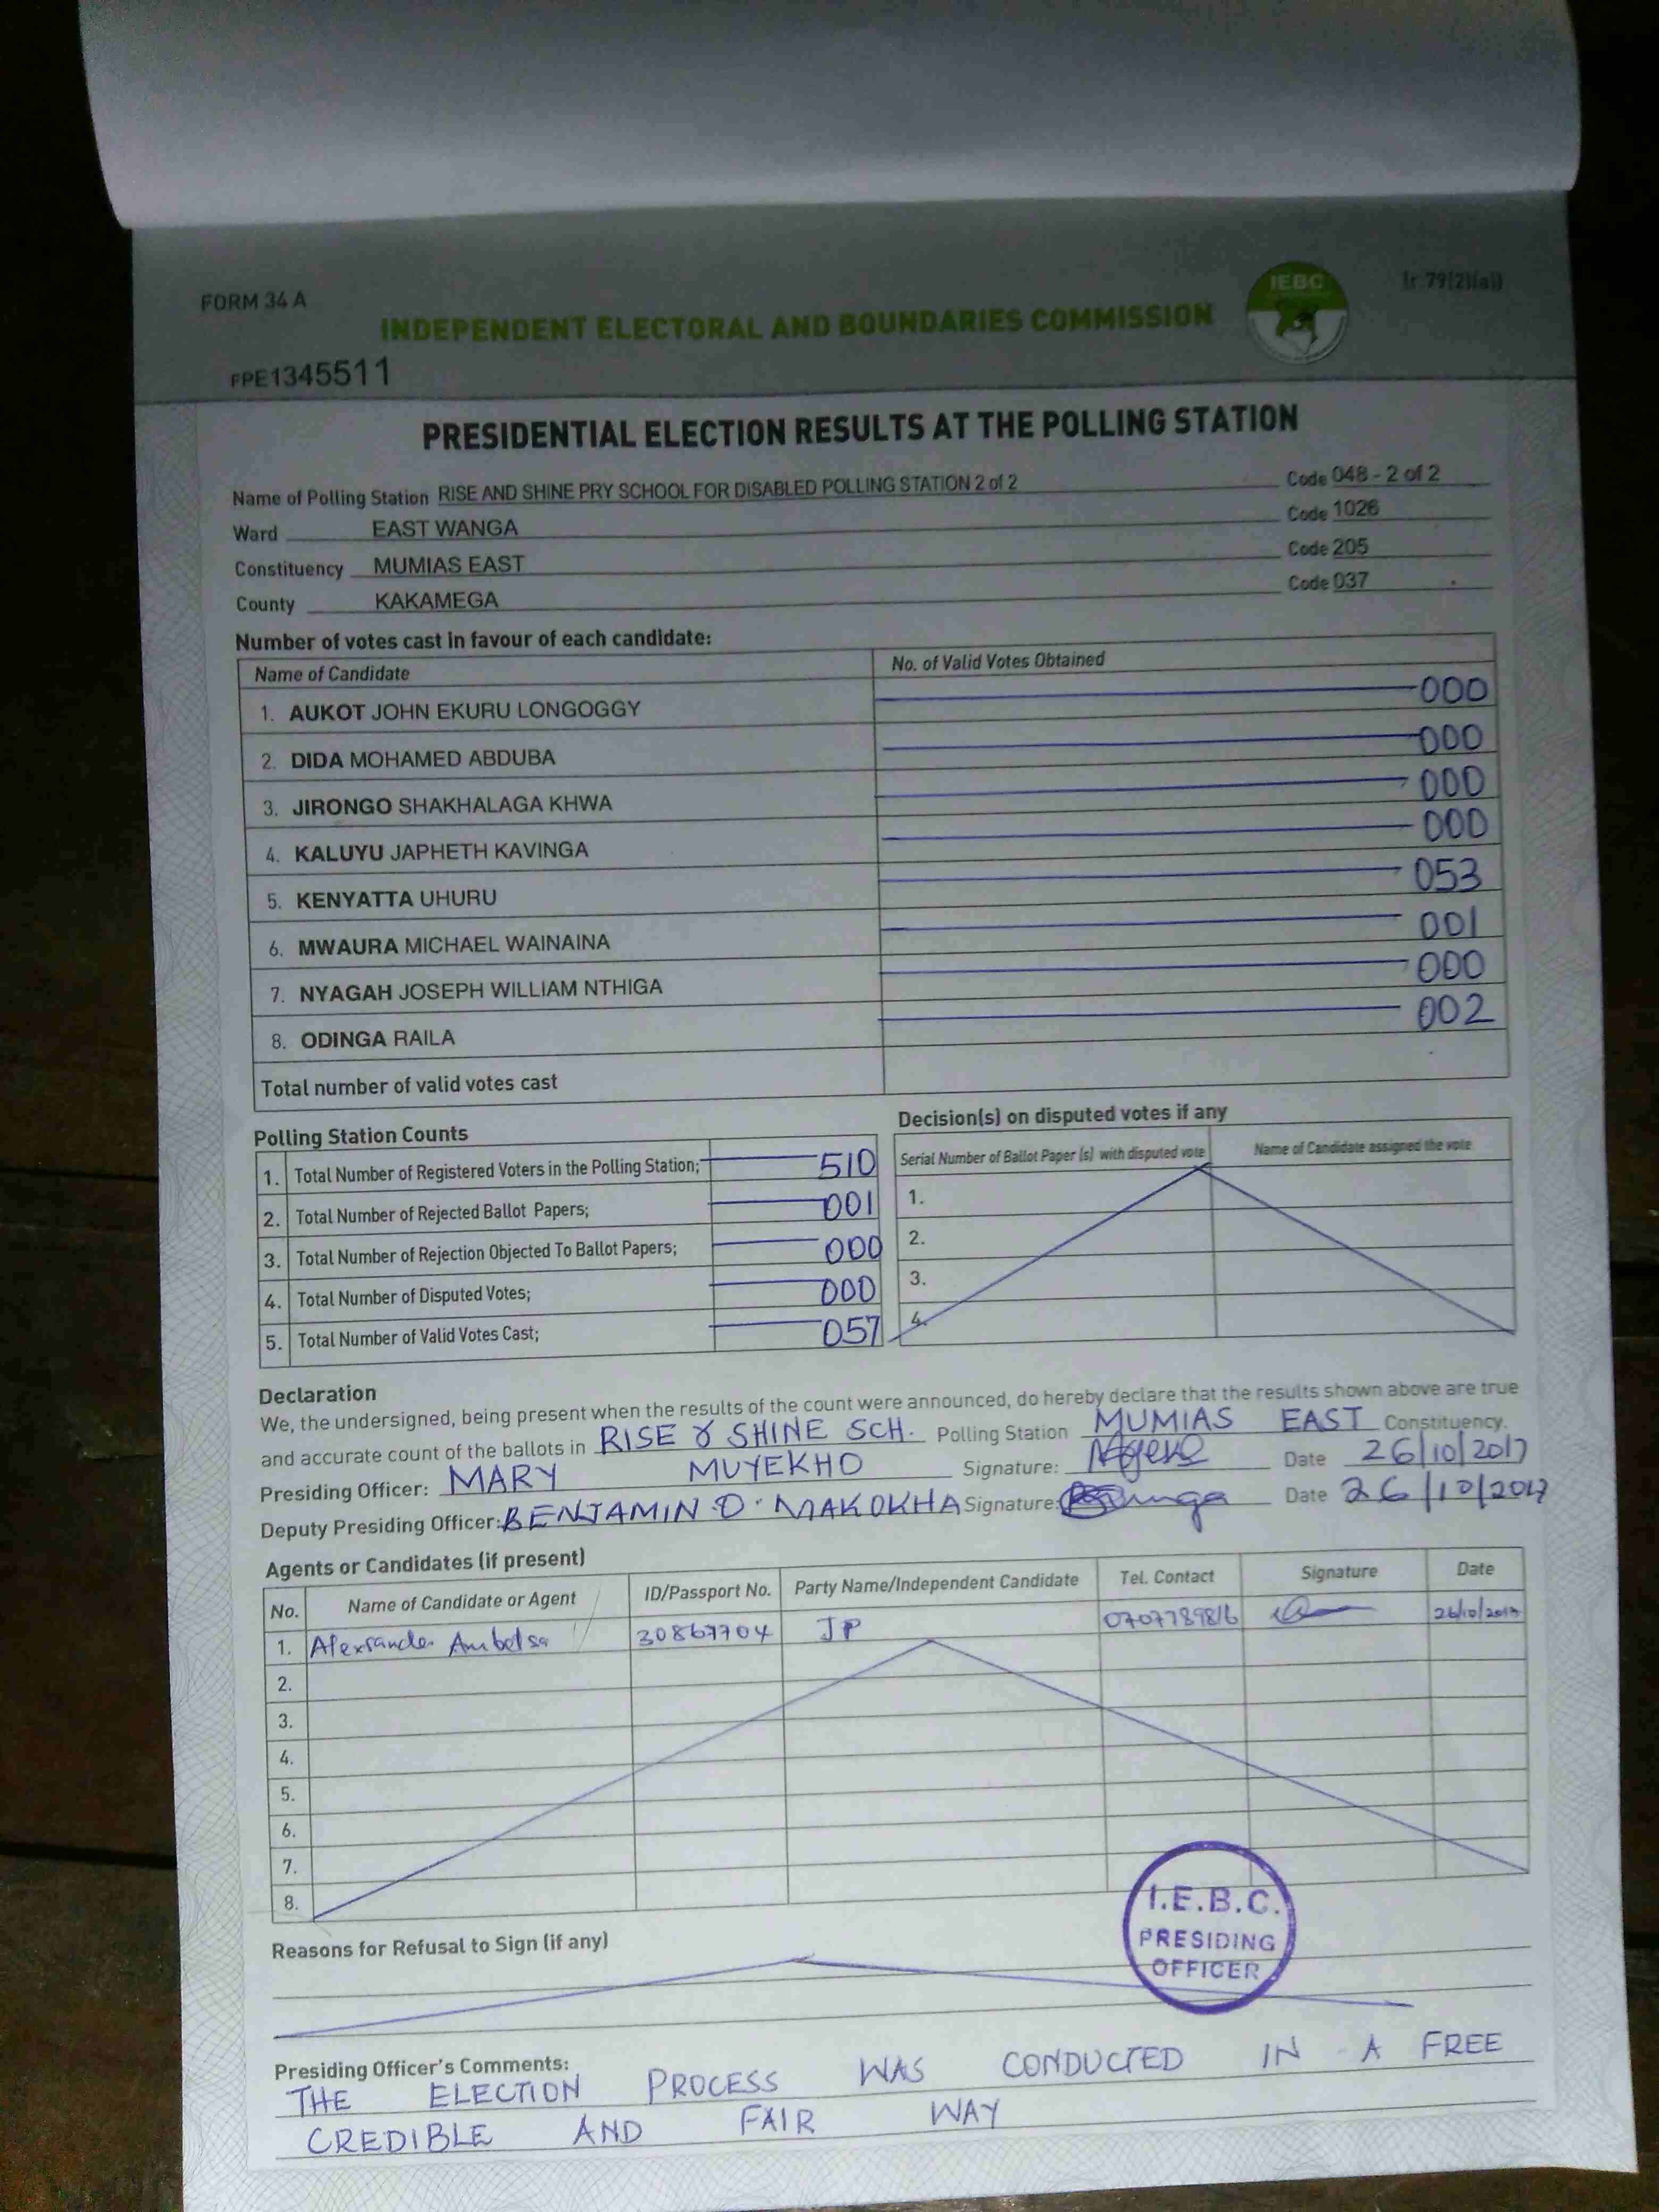 FORM 34 A
(r.79(2)(a))
IEBC
INDEPENDENT ELECTORAL AND BOUNDARIES COMMISSION
FPE1345511
PRESIDENTIAL ELECTION RESULTS AT THE POLLING STATION
Name of Polling Station RISE AND SHINE PRY SCHOOL FOR DISABLED POLLING STATION 2 of 2 Code 048 - 2 of 2
Ward EAST WANGA Code 1026
Constituency MUMIAS EAST Code 205
County KAKAMEGA Code 037
Number of votes cast in favour of each candidate:
Name of Candidate No. of Valid Votes Obtained
1. AUKOT JOHN EKURU LONGOGGY 000
2. DIDA MOHAMED ABDUBA 000
3. JIRONGO SHAKHALAGA KHWA 000
4. KALUYU JAPHETH KAVINGA 000
5. KENYATTA UHURU 053
6. MWAURA MICHAEL WAINAINA 001
7. NYAGAH JOSEPH WILLIAM NTHIGA 000
8. ODINGA RAILA 002
Total number of valid votes cast
Polling Station Counts
1. Total Number of Registered Voters in the Polling Station; 510
2. Total Number of Rejected Ballot Papers; 001
3. Total Number of Rejection Objected To Ballot Papers; 000
4. Total Number of Disputed Votes; 000
5. Total Number of Valid Votes Cast; 057
Decision(s) on disputed votes if any
Serial Number of Ballot Paper (s) with disputed vote Name of Candidate assigned the vote
1.
2.
3.
4.
Declaration
We, the undersigned, being present when the results of the count were announced, do hereby declare that the results shown above are true
and accurate count of the ballots in RISE & SHINE SCH. Polling Station MUMIAS EAST Constituency.
Presiding Officer: MARY MUYEKHO Signature: Date 26/10/2017
Deputy Presiding Officer: BENJAMIN O. MAKOKHA Signature: Date 26/10/2017
Agents or Candidates (if present)
No. Name of Candidate or Agent ID/Passport No. Party Name/Independent Candidate Tel. Contact Signature Date
1. Alexsander Ambetsa 30867704 JP 0707789816 26/10/2017
2.
3.
4.
5.
6.
7.
8.
I.E.B.C.
PRESIDING
OFFICER
Reasons for Refusal to Sign (if any)
Presiding Officer's Comments:
THE ELECTION PROCESS WAS CONDUCTED IN A FREE
CREDIBLE AND FAIR WAY